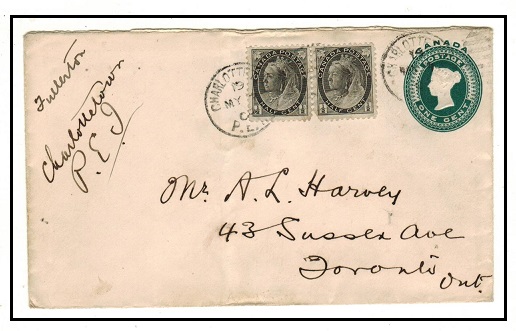 Fullerton
Charlottetown
P.E.I
CANADA POSTAGE
HALF CENT
CANADA POSTAGE
HALF CENT
CHARLOTTE
MY
P.E.
CHARLOTTE
CANADA
POSTAGE
ONE CENT
Mr. A. L. Harvey
43 Sussex Ave
Toronto
Ont.